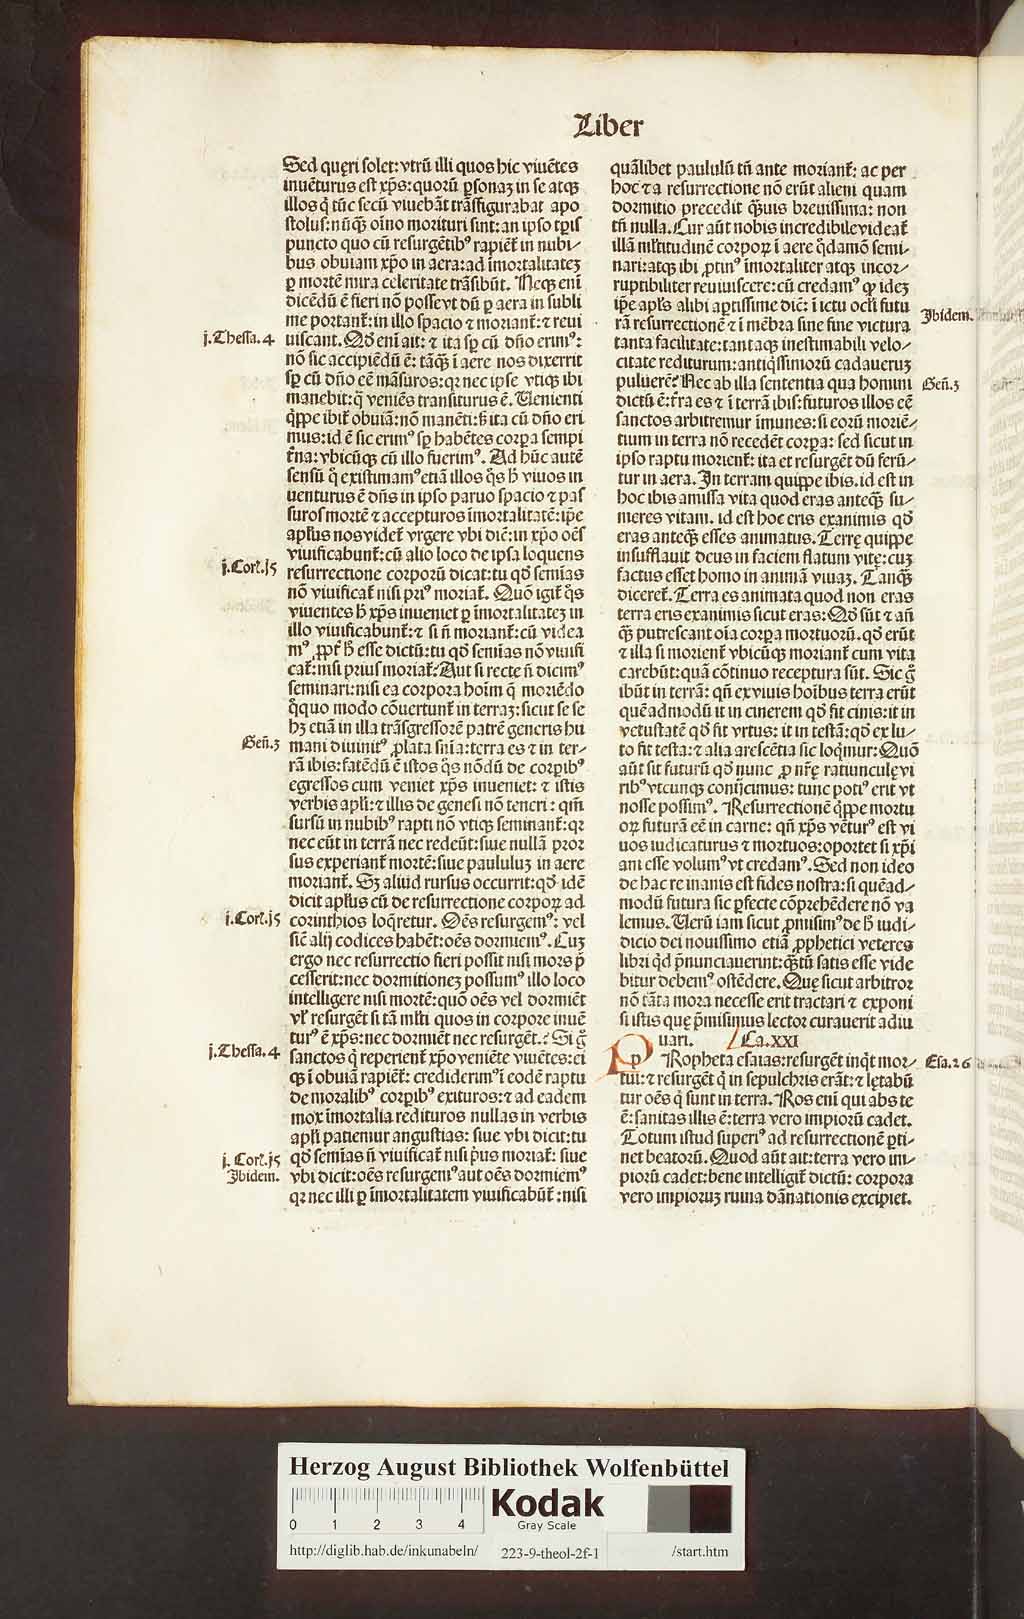 Liber
Sed quęri solet: vtrũ illi quos hic viuẽtes
inuẽturus est xp̃s: quorũ ꝑsonaꝫ in se atqꝫ
illos q̃ tũc secũ viuebãt trãsfigurabat apo
stolus: nũq̃ꝫ oĩno morituri sint: an ipso tꝑis
puncto quo cũ resurgẽtibꝰ rapiẽt̃ in nubi⸗
bus obuiam xp̃o in aera: ad ĩmortalitateꝫ
ꝑ mortẽ mira celeritate trãsibũt. Neqꝫ enĩ
dicẽdũ ẽ fieri nõ posse vt dũ ꝑ aera in subli
me portant̃: in illo spacio ⁊ moriant̃: ⁊ reui
j. Thessa. 4
uiscant. Qđ enĩ ait: ⁊ ita sꝑ cũ dño erimꝰ:
nõ sic accipiẽdũ ẽ: tãq̃ꝫ ĩ aere nos dixerit
sꝑ cũ dño eẽ mãsuros: qꝛ nec ipse vtiqꝫ ibi
manebit: q̃ veniẽs transiturus ẽ. Uenienti
q̃ppe ibit̃ obuiã: nõ manẽti: h̃ ita cũ dño eri
mus: id ẽ sic erimꝰ sꝑ habẽtes corꝑa sempi
t̃na: vbicũqꝫ cũ illo fuerimꝰ. Ad hũc autẽ
sensũ q̃ existimamꝰ etiã illos q̃s h̃ viuos in
uenturus ẽ dñs in ipso paruo spacio ⁊ pas
suros mortẽ ⁊ accepturos ĩmortalitatẽ: ip̃e
apl̃us nos videt̃ vrgere vbi dic̃: in xp̃o oẽs
viuificabunt̃: cũ alio loco de ipsa loquens
j. Cort̃. j5
resurrectione corporũ dicat: tu qđ semĩas
nõ viuificat̃ nisi priꝰ moriat̃. Quõ igit̃ q̃s
viuentes h̃ xp̃s inueniet ꝑ ĩmortalitateꝫ in
illo viuificabunt̃: ⁊ si ñ moriant̃: cũ videa
mꝰ ꝓpt̃ h̃ esse dictũ: tu qđ semĩas nõ viuifi
cat̃: nisi prius moriat̃? Aut si recte ñ dicimꝰ
seminari: nisi ea corpora hoĩm q̃ moriẽdo
q̃quo modo cõuertunt̃ in terraꝫ: sicut se se
hꝫ etiã in illa trãsgressorẽ patrẽ generis hu
Geñ. 3
mani diuinitꝰ ꝓlata sñĩa: terra es ⁊ in ter⸗
rã ibis: fatẽdũ ẽ istos q̃s nõdũ de corꝑibꝰ
egressos cum veniet xp̃s inueniet: ⁊ istis
verbis apl̃i: ⁊ illis de genesi nõ teneri: qm̃
sursũ in nubibꝰ rapti nõ vtiqꝫ seminant̃: qꝛ
nec eũt in terrã nec redeũt: siue nullã pror
sus experiant̃ mortẽ: siue paululuꝫ in aere
moriant̃. Sꝫ aliud rursus occurrit: qđ idẽ
dicit apl̃us cũ de resurrectione corpoꝝ ad
j. Cort̃. j5
corinthios loq̃retur. Oẽs resurgemꝰ: vel
sic̃ alij codices habẽt: oẽs dormiemꝰ. Cuꝫ
ergo nec resurrectio fieri possit nisi mors p̃
cesserit: nec dormitioneꝫ possumꝰ illo loco
intelligere nisi mortẽ: quõ oẽs vel dormiẽt
vl̃ resurgẽt si tã ml̃ti quos in corpore inuẽ
turꝰ ẽ xp̃s: nec dormiẽt nec resurgẽt.? Si g̃
j. Thessa. 4
sanctos q̃ reperient̃ xp̃o veniẽte viuẽtes: ei
qꝫ ĩ obuiã rapiẽt̃: crediderimꝰ ĩ eodẽ raptu
de moralibꝰ corꝑibꝰ exituros: ⁊ ad eadem
mox ĩmortalia redituros nullas in verbis
apl̃i patiemur angustias: siue vbi dicit: tu
j. Cort̃. j5
qđ semĩas ñ viuificat̃ nisi p̃us moriat̃: siue
Jbidem.
vbi dicit: oẽs resurgemꝰ aut oẽs dormiemꝰ
qꝛ nec illi ꝑ ĩmortalitatem viuificabũt̃: nisi
quãlibet paululũ tñ ante moriant̃: ac per
hoc ⁊ a resurrectione nõ erũt alieni quam
dormitio precedit q̃ꝫuis breuissima: non
tñ nulla. Cur aũt nobis incredibile videat̃
illã ml̃titudinẽ corpoꝝ ĩ aere q̃damõ semi⸗
nari: atqꝫ ibi ꝓtinꝰ ĩmortaliter atqꝫ incor⸗
ruptibiliter reuiuiscere: cũ credamꝰ qꝫ ideꝫ
ip̃e apl̃s alibi aꝑtissime dic̃: ĩ ictu ocl̃i futu
Jbidem.
rã resurrectionẽ ⁊ ĩ mẽbra sine fine victura
tanta facilitate: tantaqꝫ inestimabili velo⸗
citate rediturum: antiq̃ssimorũ cadaueruꝫ
Geñ. 3
puluerẽ? Nec ab illa sententia qua homini
dictũ ẽ: t̃ra es ⁊ ĩ terrã ibis: futuros illos eẽ
sanctos arbitremur ĩmunes: si eorũ moriẽ⸗
tium in terra nõ recedẽt corꝑa: sed sicut in
ipso raptu morient̃: ita et resurgẽt dũ ferũ⸗
tur in aera. In terram quippe ibis. id est in
hoc ibis amissa vita quod eras anteq̃ꝫ su⸗
meres vitam. id est hoc eris exanimis qđ
eras anteq̃ꝫ esses animatus. Terrę quippe
insufflauit deus in faciem flatum vitę: cuꝫ
factus esset homo in animã viuaꝫ. Tanq̃ꝫ
diceret̃. Terra es animata quod non eras
terra eris exanimis sicut eras: Qđ sũt ⁊ añ
q̃ꝫ putrescant oĩa corꝑa mortuorũ. qđ erũt
⁊ illa si morient̃ vbicũqꝫ moriant̃ cum vita
carebũt: quã cõtinuo receptura sũt. Sic g̃
ibũt in terrã: qñ ex viuis hoĩbus terra erũt
quẽadmodũ it in cinerem qđ fit cinis: it in
vetustatẽ qđ fit vetus: it in testã: qđ ex lu⸗
to fit testa: ⁊ alia arescẽtia sic loq̃mur: Quõ
aũt sit futurũ qđ nunc ꝓ nr̃ę ratiunculę vi
ribꝰ vtcunqꝫ conijcimus: tunc potiꝰ erit vt
nosse possimꝰ. Resurrectionẽ q̃ppe mortu
oꝝ futurã eẽ in carne: qñ xp̃s vẽturꝰ est vi
uos iudicaturus ⁊ mortuos: oportet si xp̃i
ani esse volumꝰ vt credamꝰ. Sed non ideo
de hac re inanis est fides nostra: si quẽad⸗
modũ futura sic ꝑfecte cõprehẽdere nõ va
lemus. Uerũ iam sicut ꝓmisimꝰ de h̃ iudi⸗
dicio dei nouissimo etiã ꝓphetici veteres
libri q̃d p̃nunciauerint: q̃ꝫtũ satis esse vide
bitur debemꝰ ostẽdere. Quę sicut arbitror
nõ tãta mora necesse erit tractari ⁊ exponi
si istis quę p̃misimus lector curauerit adiu
uari. Ca. XXI
Esa. 26
PRopheta esaias: resurgẽt inq̃t mor⸗
tui: ⁊ resurgẽt q̃ in sepulchris erãt: ⁊ lętabũ
tur oẽs q̃ sunt in terra. Ros enĩ qui abs te
ẽ: sanitas illis ẽ: terra vero impiorũ cadet.
Totum istud superiꝰ ad resurrectionẽ ꝑti⸗
net beatorũ. Quod aũt ait: terra vero im⸗
piorũ cadet: bene intelligit̃ dictũ: corpora
vero impioruꝫ ruina dãnationis excipiet.
Herzog August Bibliothek Wolfenbüttel
0 1 2 3 4
Kodak
Gray Scale
http://diglib.hab.de/inkunabeln/ 223-9-theol-2f-1 /start.htm